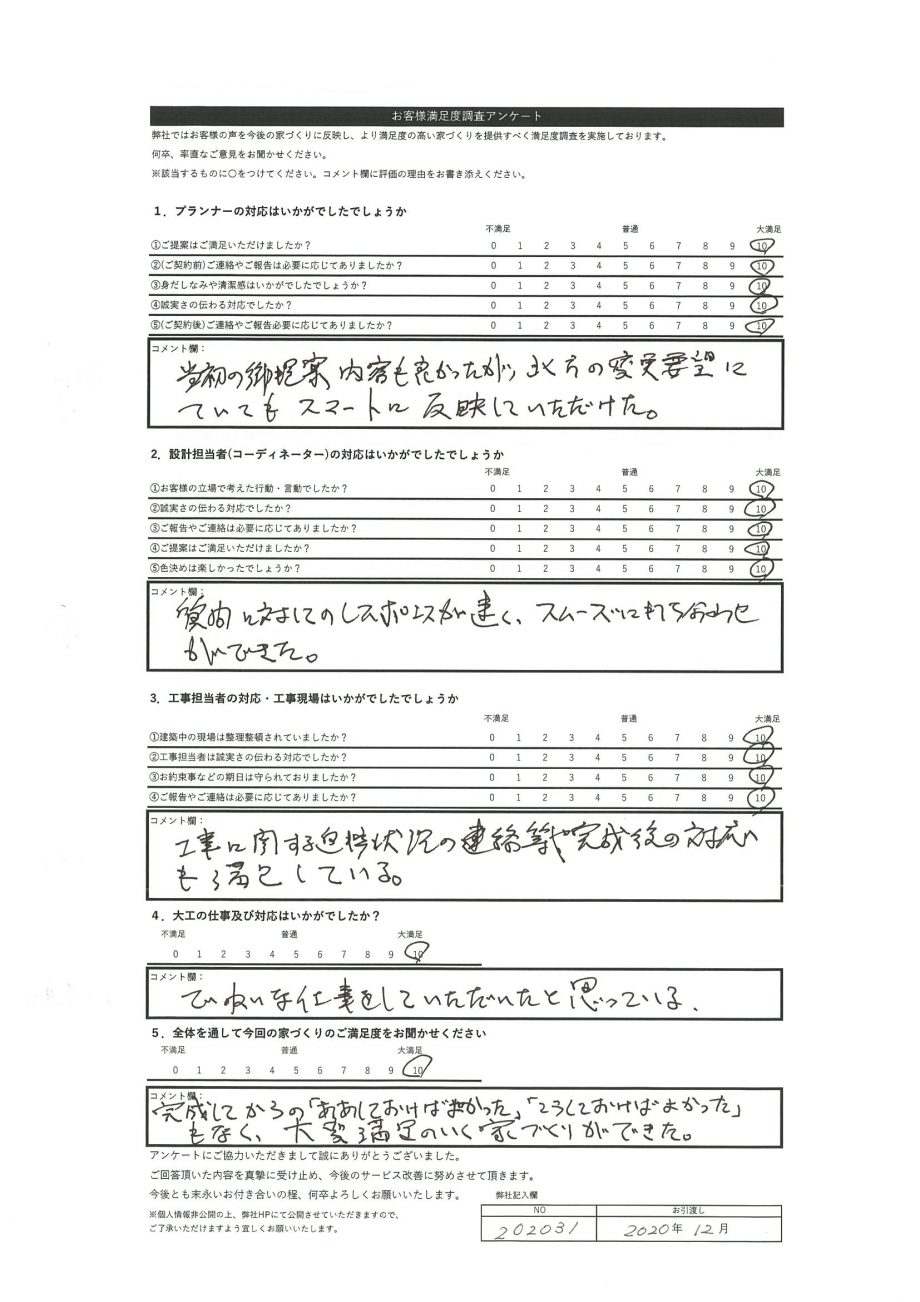 お客様満足度調査アンケート
弊社ではお客様の声を今後の家づくりに反映し、より満足度の高い家づくりを提供すべく満足度調査を実施しております。
何卒、率直なご意見をお聞かせください。
※該当するものに〇をつけてください。コメント欄に評価の理由をお書き添えください。
1．プランナーの対応はいかがでしたでしょうか
不満足 普通 大満足
①ご提案はご満足いただけましたか？ 0 1 2 3 4 5 6 7 8 9 10
②(ご契約前)ご連絡やご報告は必要に応じてありましたか？ 0 1 2 3 4 5 6 7 8 9 10
③身だしなみや清潔感はいかがでしたでしょうか？ 0 1 2 3 4 5 6 7 8 9 10
④誠実さの伝わる対応でしたか？ 0 1 2 3 4 5 6 7 8 9 10
⑤(ご契約後)ご連絡やご報告必要に応じてありましたか？ 0 1 2 3 4 5 6 7 8 9 10
コメント欄：
当初の御提案内容も良かったが、の変更要望に
ついてもスマートに反映していただけた。
2．設計担当者(コーディネーター)の対応はいかがでしたでしょうか
不満足 普通 大満足
①お客様の立場で考えた行動・言動でしたか？ 0 1 2 3 4 5 6 7 8 9 10
②誠実さの伝わる対応でしたか？ 0 1 2 3 4 5 6 7 8 9 10
③ご報告やご連絡は必要に応じてありましたか？ 0 1 2 3 4 5 6 7 8 9 10
④ご提案はご満足いただけましたか？ 0 1 2 3 4 5 6 7 8 9 10
⑤色決めは楽しかったでしょうか？ 0 1 2 3 4 5 6 7 8 9 10
コメント欄：
質問に対してのレスポンスが速く、スムーズに打ち合わせ
ができた。
3．工事担当者の対応・工事現場はいかがでしたでしょうか
不満足 普通 大満足
①建築中の現場は整理整頓されていましたか？ 0 1 2 3 4 5 6 7 8 9 10
②工事担当者は誠実さの伝わる対応でしたか？ 0 1 2 3 4 5 6 7 8 9 10
③お約束事などの期日は守られておりましたか？ 0 1 2 3 4 5 6 7 8 9 10
④ご報告やご連絡は必要に応じてありましたか？ 0 1 2 3 4 5 6 7 8 9 10
コメント欄：
工事に関する進捗状況の連絡等や完成後の対応
も満足している。
4．大工の仕事及び対応はいかがでしたか？
不満足 普通 大満足
0 1 2 3 4 5 6 7 8 9 10
コメント欄：
ていねいな仕事をしていただいたと思っている。
5．全体を通して今回の家づくりのご満足度をお聞かせください
不満足 普通 大満足
0 1 2 3 4 5 6 7 8 9 10
コメント欄：
完成してからの「ああしておけばよかった」「こうしておけばよかった」
もなく、大変満足のいく家づくりができた。
アンケートにご協力いただきまして誠にありがとうございました。
ご回答頂いた内容を真摯に受け止め、今後のサービス改善に努めさせて頂きます。
今後とも末永いお付き合いの程、何卒よろしくお願いいたします。
※個人情報非公開の上、弊社HPにて公開させていただきますので、
ご了承いただけますよう宜しくお願いいたします。
弊社記入欄
NO お引渡し
202031 2020年 12月